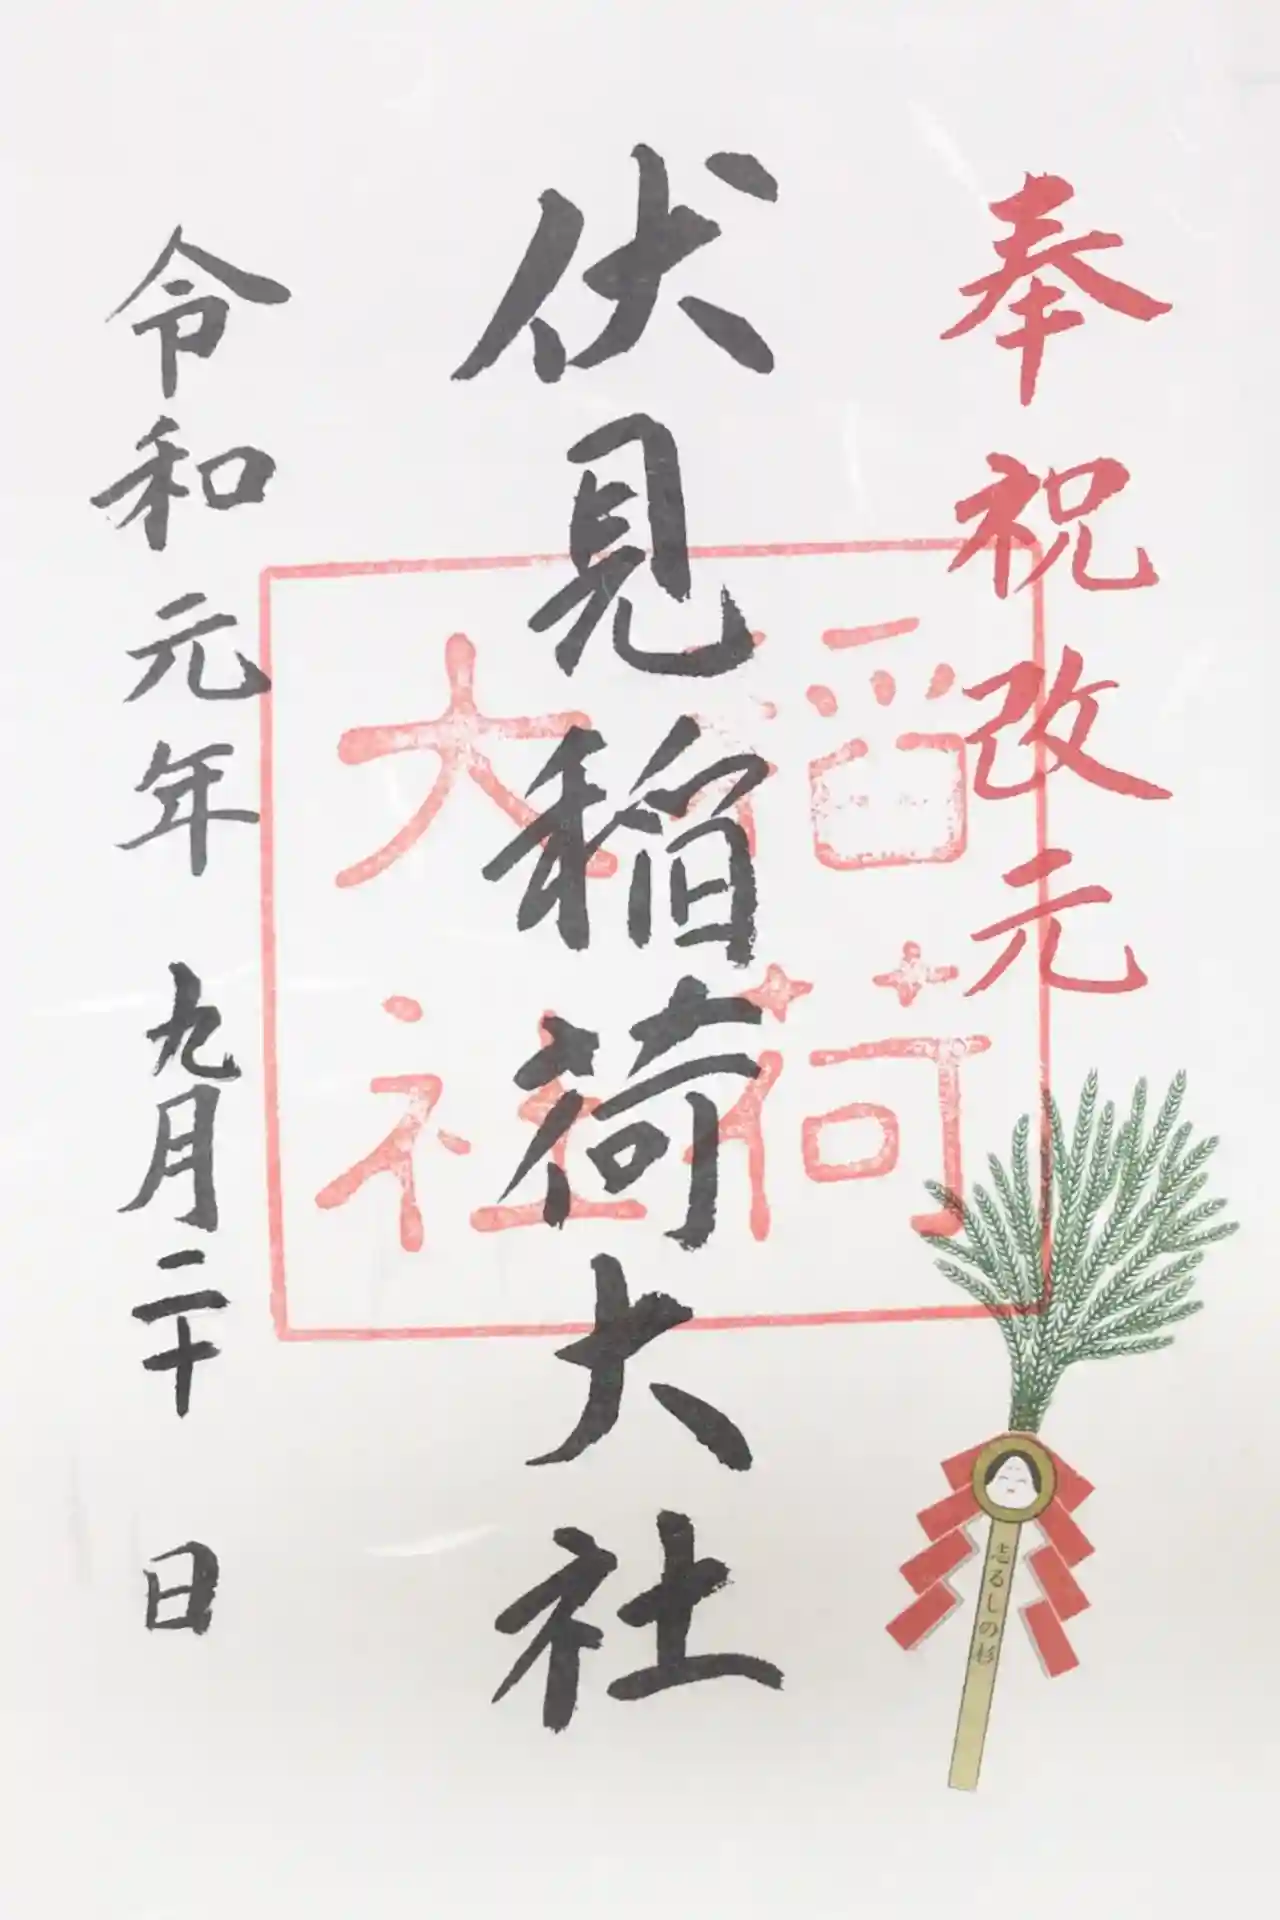 奉祝改元
伏見稲荷大社
稲荷大社
令和元年 九月二十日
志るしの杉